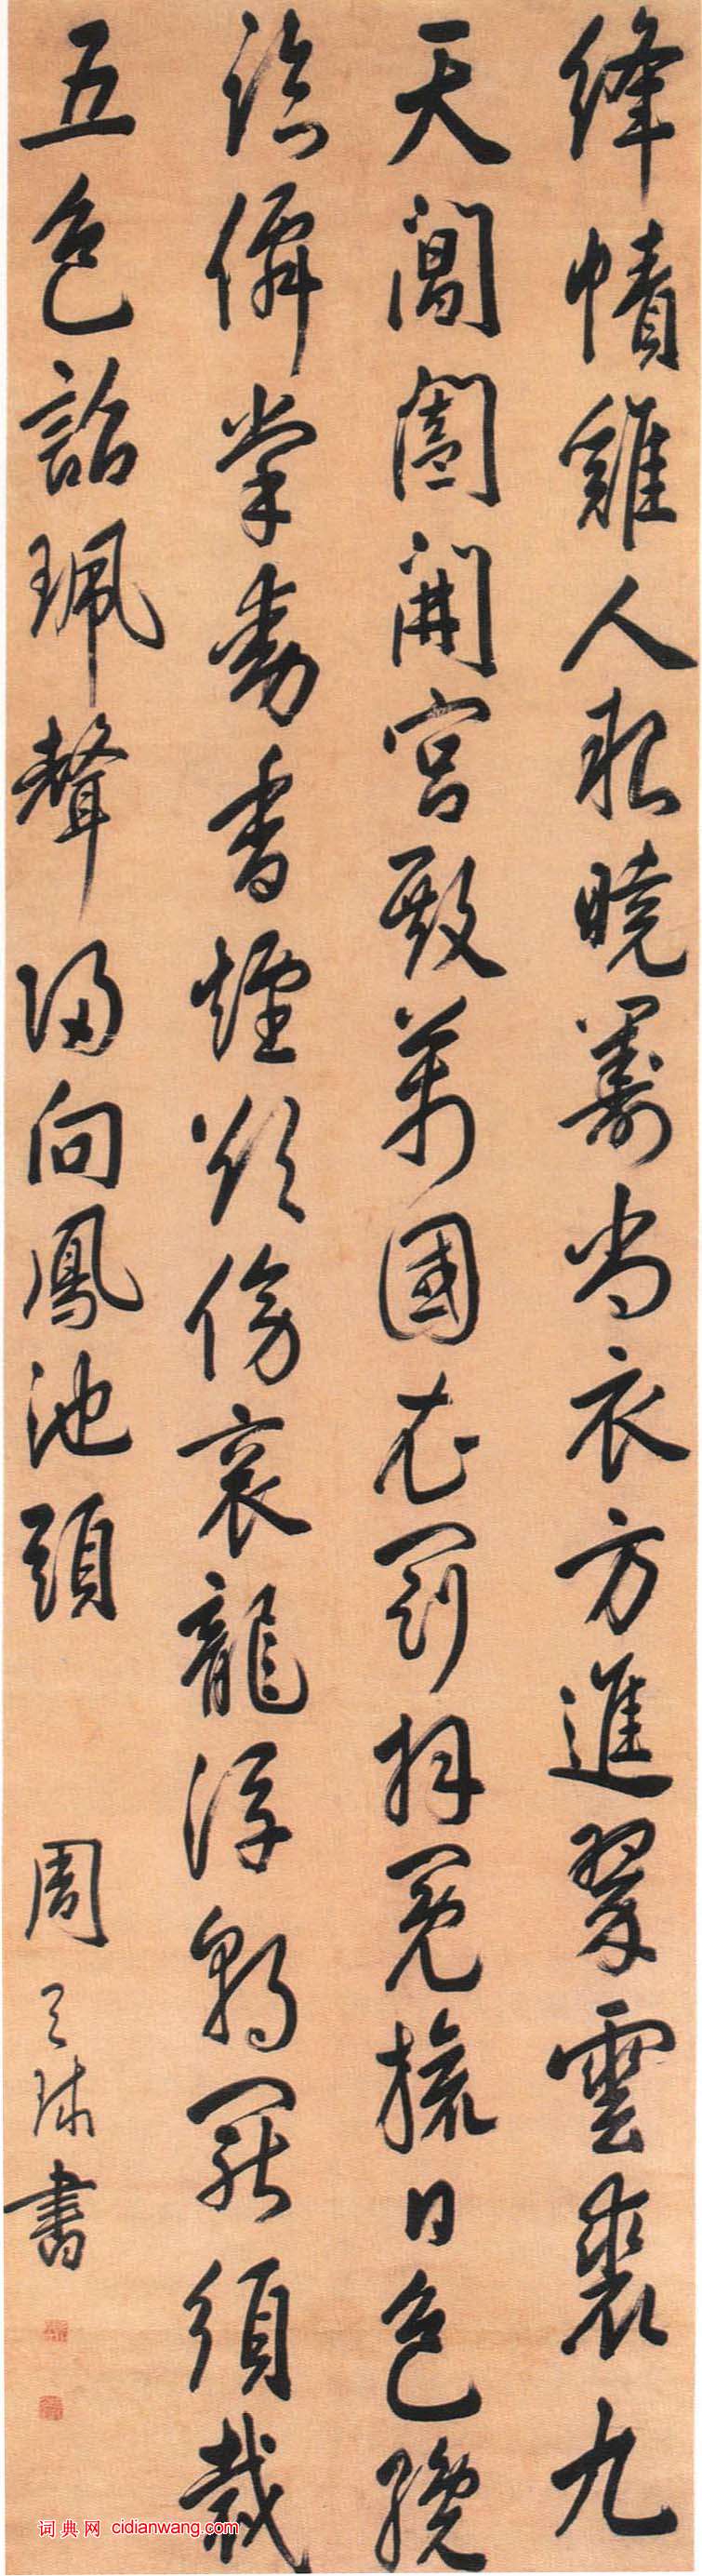 絳幘雞人報曉籌尚衣方進翠雲裘九
天閶闔開宮殿萬國衣冠拜冕旒日色纔
臨僊掌動香煙欲傍袞龍浮朝罷須裁
五色詔珮聲歸向鳳池頭
周天球書
词典网 cidianwang.com